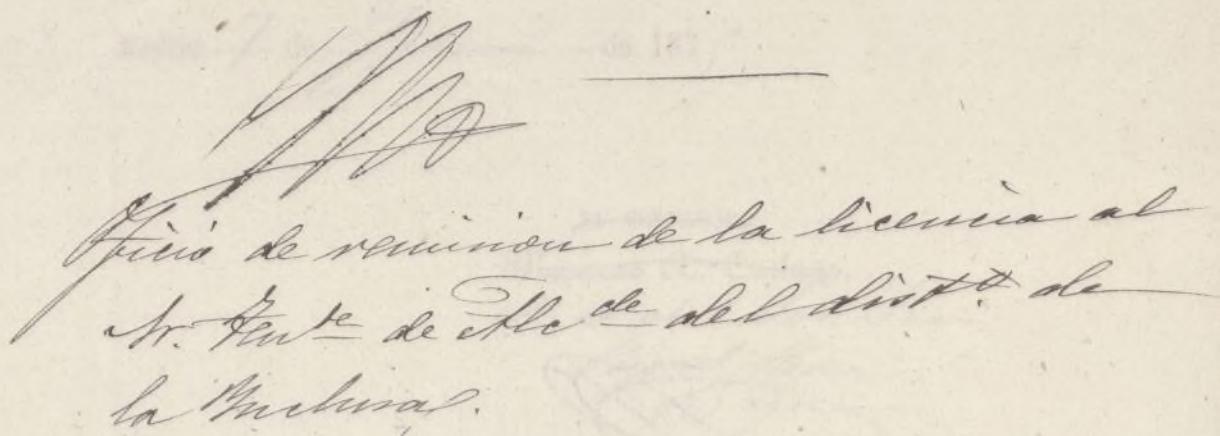 Oficio de remision de la licencia al
Sr. Tente de Alcde del distto de
la Inclusa.